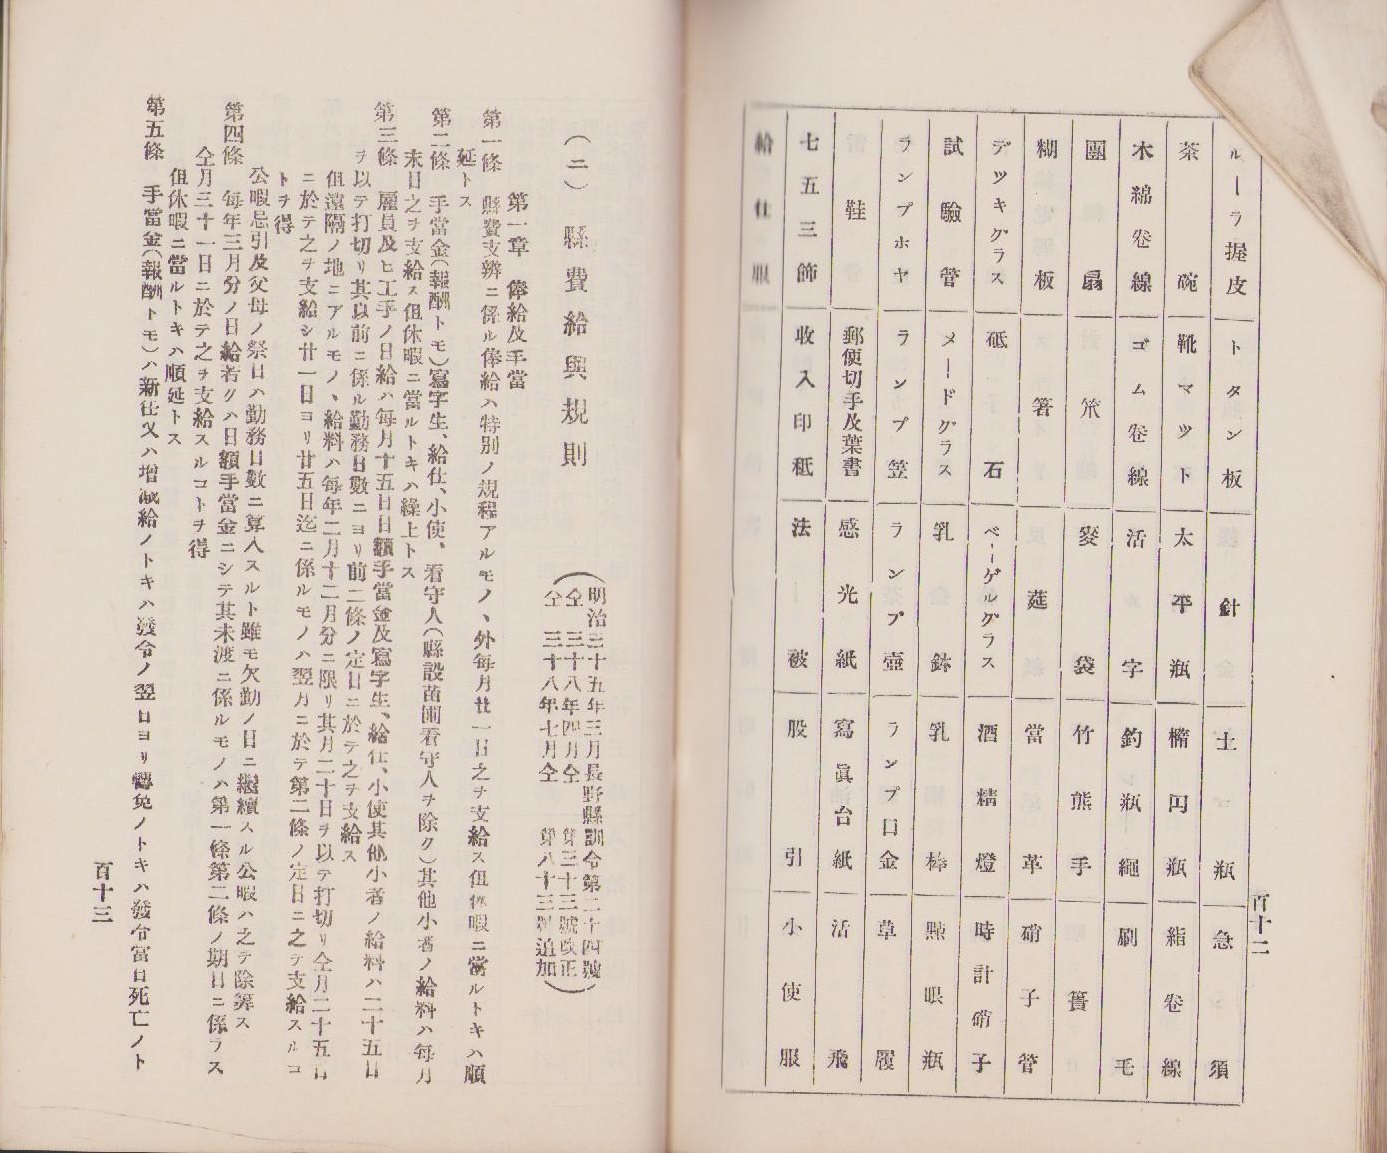 百十二
ルーラ握皮 トタン板 針 土瓶 急須
茶碗 靴マツト 太平瓶 楕円瓶 絹卷線
木綿卷線 ゴム卷線 活字 釣瓶繩 刷毛
團扇 旅 麥袋 竹熊手 簀
糊板 箸 莚 當革 硝子管
デツキグラス 砥石 ベーゲルグラス 酒精燈 時計硝子
試驗管 メードグラス 乳鉢 乳棒 㸃眼瓶
ランプホヤ ランプ笠 ランプ壺 ランプ口金 草履
鞋 郵便切手及葉書 感光紙 寫眞台紙 活飛
七五三飾 收入印紙 法被 股引 小使服
給仕服
(二) 縣費給與規則
(明治三十五年三月長野縣訓令第二十四號
仝 三十八年四月仝 第三十三號改正
仝 三十八年七月仝 第八十三號追加)
第一章 俸給及手當
第一條 縣費支辨ニ係ル俸給ハ特別ノ規程アルモノヽ外毎月廿一日之ヲ支給ス但休暇ニ當ルトキハ順
延トス
第二條 手當金(報酬トモ)寫字生、給仕、小使、看守人(縣設苗圃看守人ヲ除ク)其他小者ノ給料ハ毎月
末日之ヲ支給ス但休暇ニ當ルトキハ繰上トス
第三條 雇員及ヒ工手ノ日給ハ毎月十五日日額手當金及寫字生、給仕、小使其他小者ノ給料ハ二十五日
ヲ以テ打切リ其以前ニ係ル勤務日數ニヨリ前二條ノ定日ニ於テ之ヲ支給ス
但遠隔ノ地ニアルモノヽ給料ハ毎年二月十二月分ニ限リ其月二十日ヲ以テ打切リ仝月二十五日
ニ於テ之ヲ支給シ廿一日ヨリ廿五日迄ニ係ルモノハ翌月ニ於テ第二條ノ定日ニ之テ支給スルコ
トヲ得
公暇忌引及父母ノ祭日ハ勤務日數ニ算入スルト雖モ欠勤ノ日ニ繼續スル公暇ハ之テ除算ス
第四條 毎年三月分ノ日給若クハ日額手當金ニシテ其未渡ニ係ルモノハ第一條第二條ノ期日ニ係ラス
仝月三十一日ニ於テ之ヲ支給スルコトヲ得
但休暇ニ當ルトキハ順延トス
第五條 手當金(報酬トモ)ハ新任又ハ增減給ノトキハ發令ノ翌日ヨリ轉免ノトキハ發令當日死亡ノト
百十三